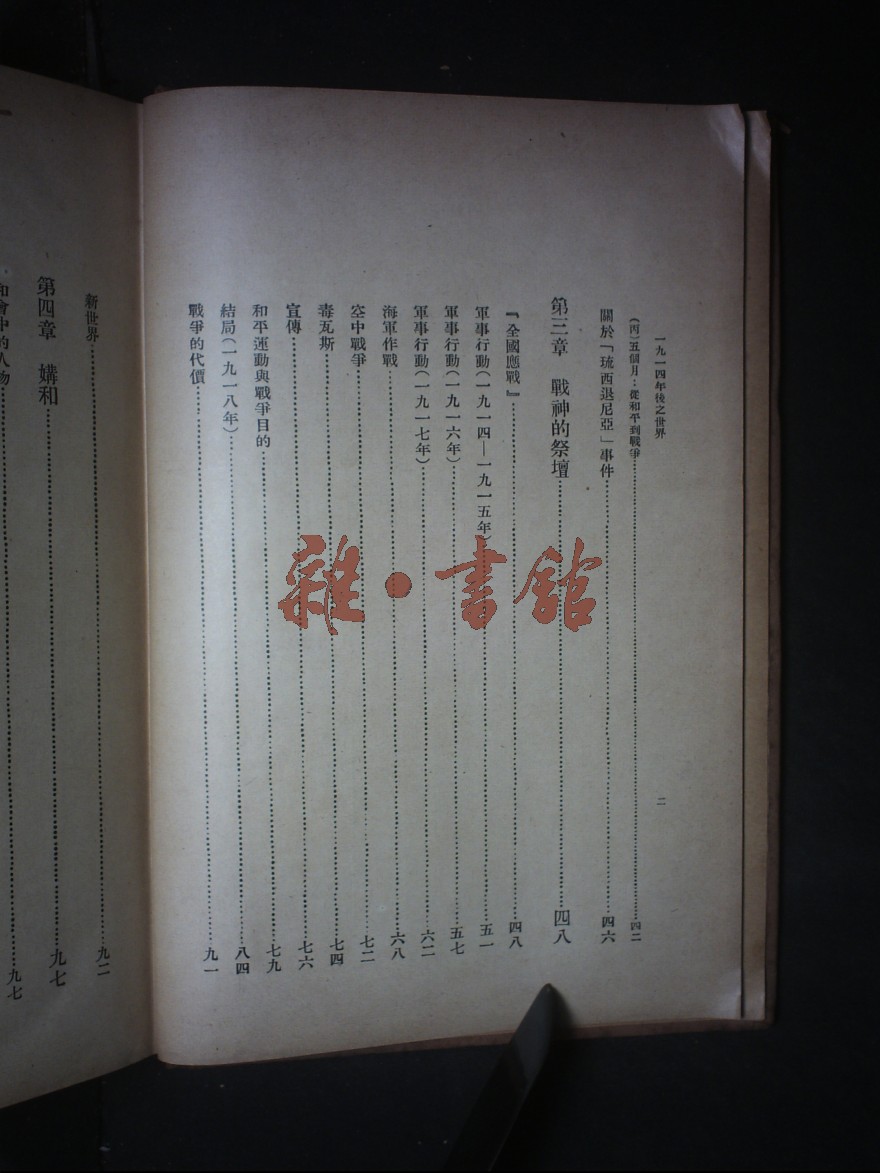 一九一四年後之世界
二
(丙)五個月:從和平到戰爭……四二
關於「琉西退尼亞」事件……四六
第三章 戰神的祭壇……四八
『全國應戰』……四八
軍事行動(一九一四—一九一五年)……五一
軍事行動(一九一六年)……五七
軍事行動(一九一七年)……六二
海軍作戰……六八
空中戰爭……七二
毒瓦斯……七四
宣傳……七六
和平運動與戰爭目的……七九
結局(一九一八年)……八四
戰爭的代價……九一
新世界……九二
第四章 媾和……九七
和會中的人物……九七
雜·書館